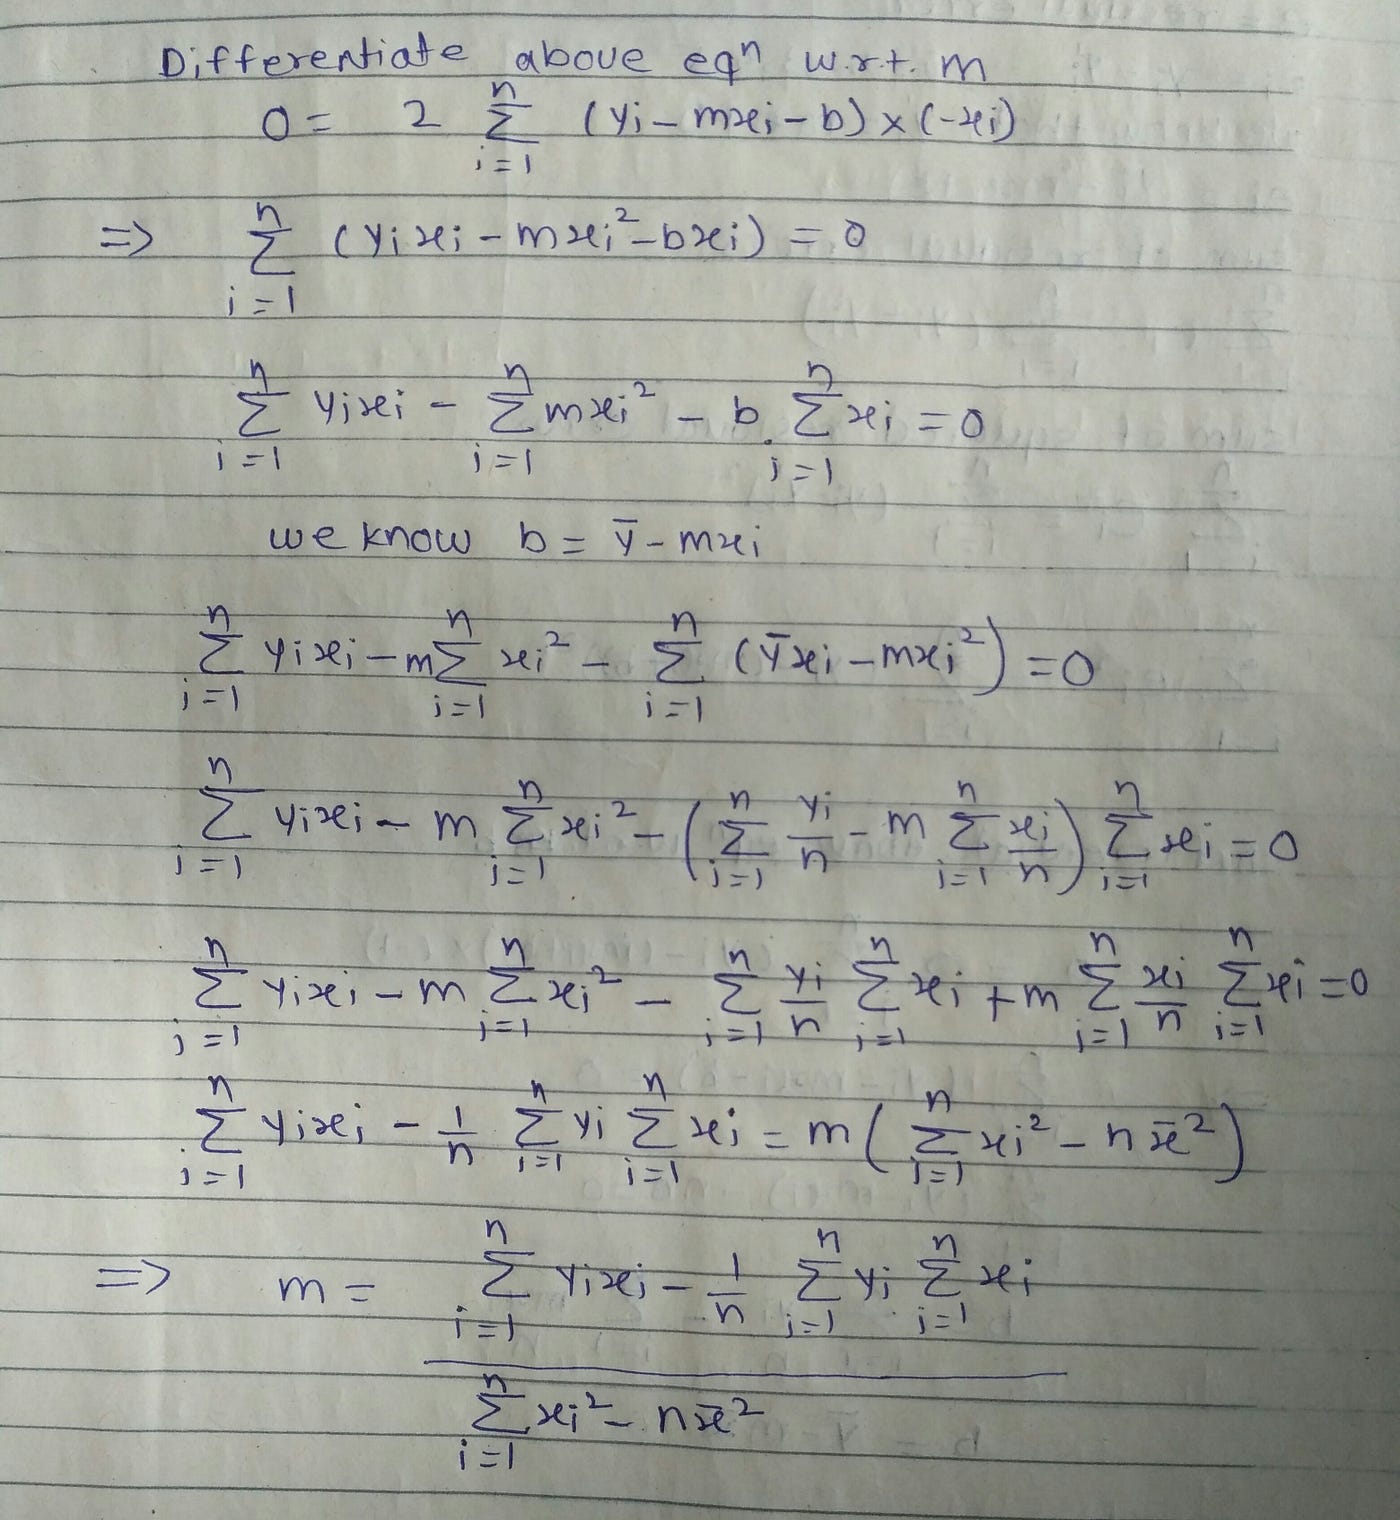 Differentiate above eqⁿ w.r.t. m
0 = 2 ∑_{i=1}^{n} (yi - mxi - b) × (-xi)
=> ∑_{i=1}^{n} (yixi - mxi² - bxi) = 0
∑_{i=1}^{n} yixi - ∑_{i=1}^{n} mxi² - b. ∑_{i=1}^{n} xi = 0
we know b = ȳ - mxi
∑_{i=1}^{n} yixi - m∑_{i=1}^{n} xi² - ∑_{i=1}^{n} (ȳxi - mxi²) = 0
∑_{i=1}^{n} yixi - m ∑_{i=1}^{n} xi² - (∑_{i=1}^{n} yi/n - m ∑_{i=1}^{n} xi/n) ∑_{i=1}^{n} xi = 0
∑_{i=1}^{n} yixi - m ∑_{i=1}^{n} xi² - ∑_{i=1}^{n} yi/n ∑_{i=1}^{n} xi + m ∑_{i=1}^{n} xi/n ∑_{i=1}^{n} xi = 0
∑_{i=1}^{n} yixi - 1/n ∑_{i=1}^{n} yi ∑_{i=1}^{n} xi = m (∑_{i=1}^{n} xi² - n x̄²)
=> m = ∑_{i=1}^{n} yixi - 1/n ∑_{i=1}^{n} yi ∑_{i=1}^{n} xi
∑_{i=1}^{n} xi² - n x̄²